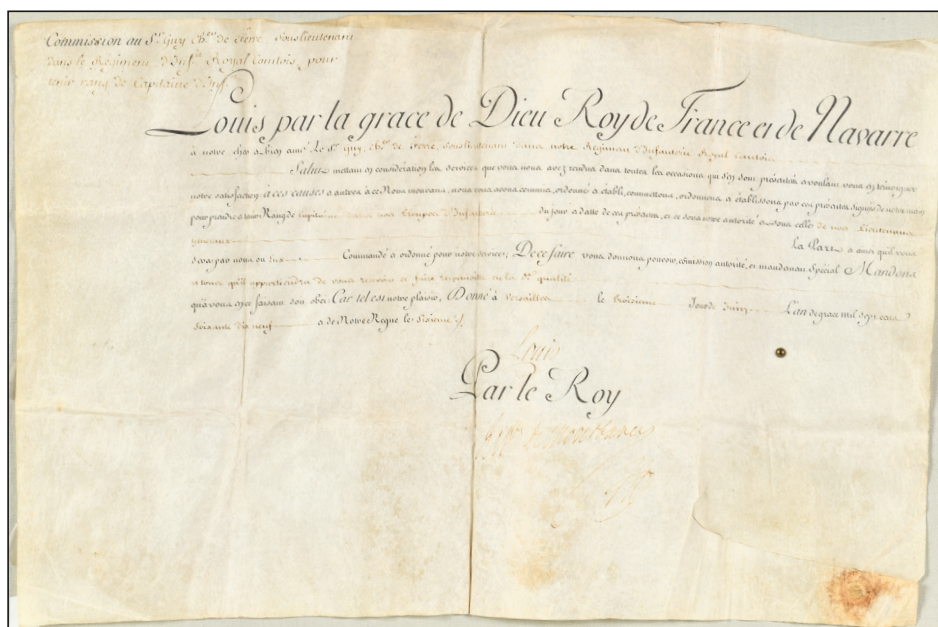 Commission au Sr. Guy Ch.er de ferre, Souslieutenant
dans le Régiment d'Inf.rie Royal Comtois, pour
tenir rang de Capitaine d'Inf.
Louis par la grace de Dieu Roy de France et de Navarre
à notre cher et bien amé Le Sr. Guy, Ch.er de ferre, Souslieutenant dans notre Régiment d'Infanterie Royal Comtois
Salut mettant en considération les services que vous nous avez rendus dans toutes les occasions qui s'en sont présentées, et voulant vous en témoigner
notre satisfaction; à ces causes et autres à ce Nous mouvans, nous vous avons commis, ordonné et établi, commettons, ordonnons et établissons par ces présentes signées de notre main
pour prendre et tenir Rang de Capitaine dans nos Troupes d'Infanterie du jour et date de ces présentes, et ce sous notre autorité et sous celle de nos Lieutenans
généraux La Part et ainsi qu'il vous
sera par nous ou eux Commandé et ordonné pour notre service; De ce faire vous donnons pouvoir, commission autorité, et mandement Spécial Mandons
à tous qu'il appartiendra de vous recevoir et faire reconnoitre en la d.e qualité
qu'à vous ce faisant soit obéi: Car tel est notre plaisir, Donné à Versailles le troisième Jour de Juin L'an de grace mil sept cens
soixante dix neuf et de Notre Regne le Sixieme
Louis
Par le Roy